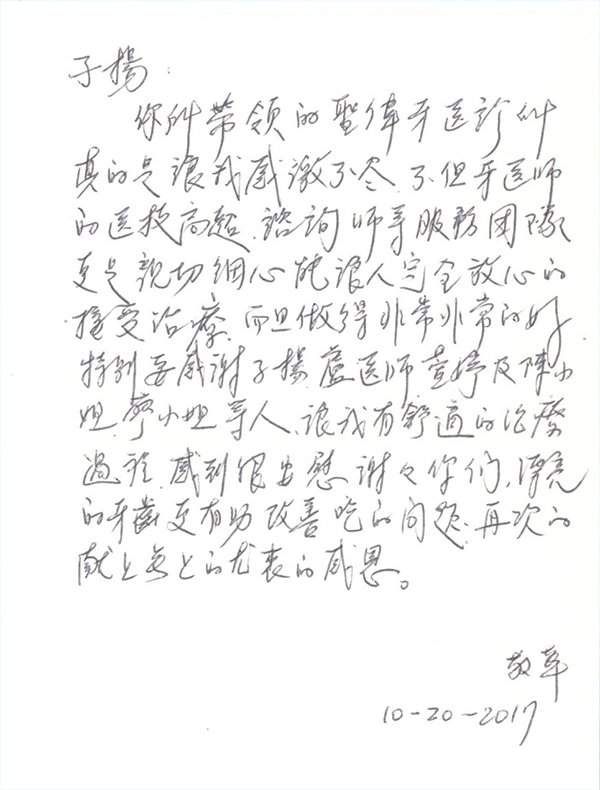 子揚:
你所帶領的聖偉牙医診所
真的是讓我感激不尽,不但牙医師
的医技高超、諮詢師等服務团隊
更是親切細心能讓人完全放心的
接受治療,而且做得非常非常的好
特別要感謝子揚,盧医師萱婷及陳小
姐,廖小姐等人、讓我有舒適的治療
過程,感到很安慰謝々你们,漂亮
的牙齒更有助改善吃的问題.再次的
献上無上的尤衷的感恩。
敬萃
10-20-2017